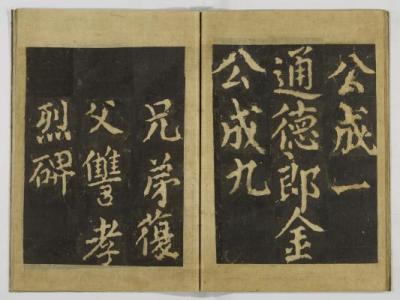 公成一
通德郎金
公成九
兄弟復
父讐孝
烈碑